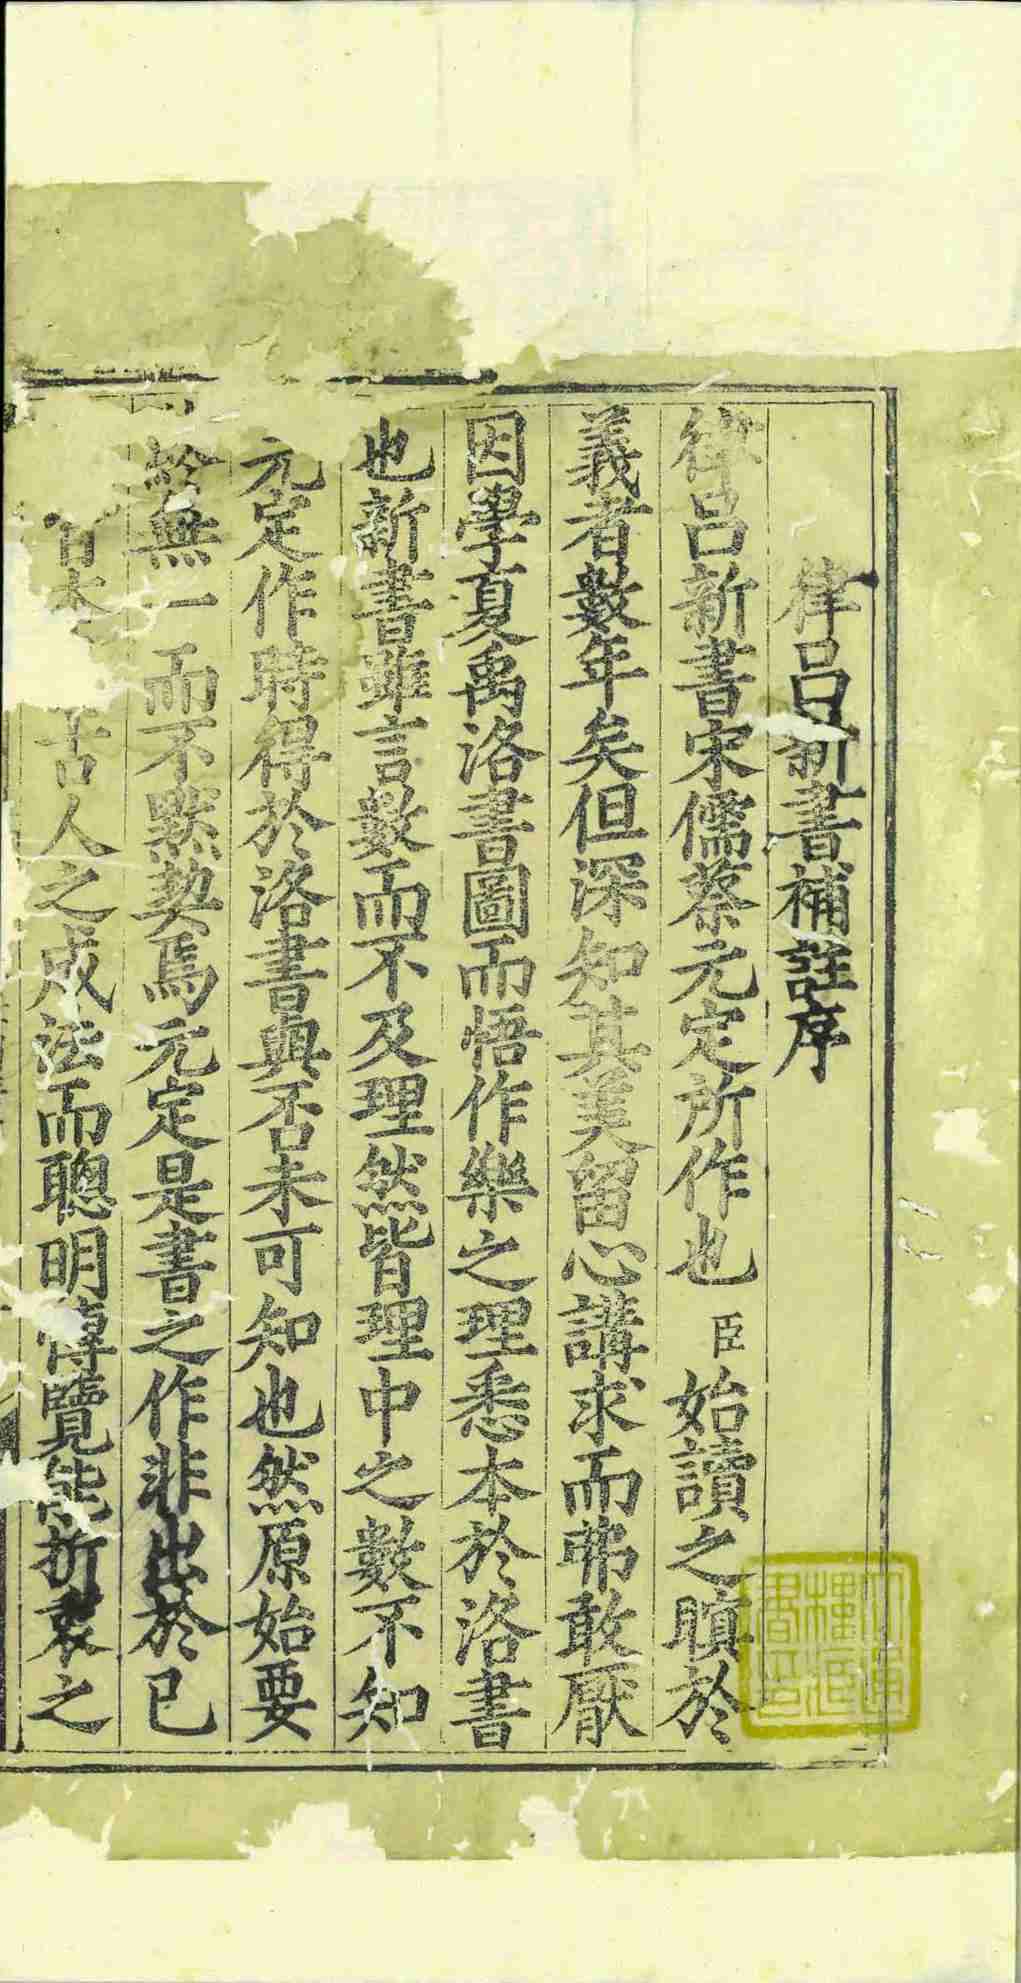 律呂新書補註序
律呂新書宋儒蔡元定所作也臣始讀之瞋於
義者數年矣但深知其美留心講求而弗敢厭
因學夏禹洛書圖而悟作樂之理悉本於洛書
也新書雖言數而不及理然皆理中之數不知
元定作時得於洛書與否未可知也然原始要
終無一而不默契焉元定是書之作非出於已
古人之成法而聰明博覽能折衷之